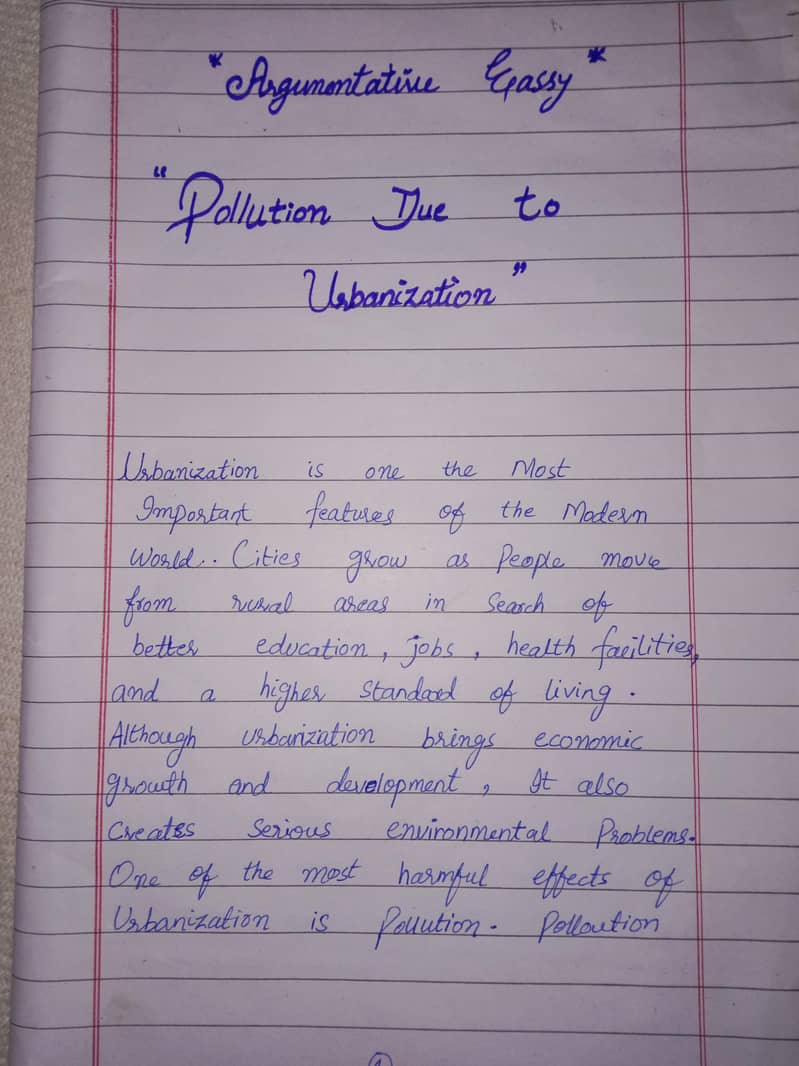 * Argumentative Essay *
"Pollution Due to
Urbanization"
Urbanization is one the Most
Important features of the Modern
World.. Cities grow as People move
from rural areas in Search of
better education, jobs, health facilities,
and a higher Standard of living.
Although urbanization brings economic
growth and development, It also
Creates Serious environmental Problems.
One of the most harmful effects of
Urbanization is Pollution. Polloution
1